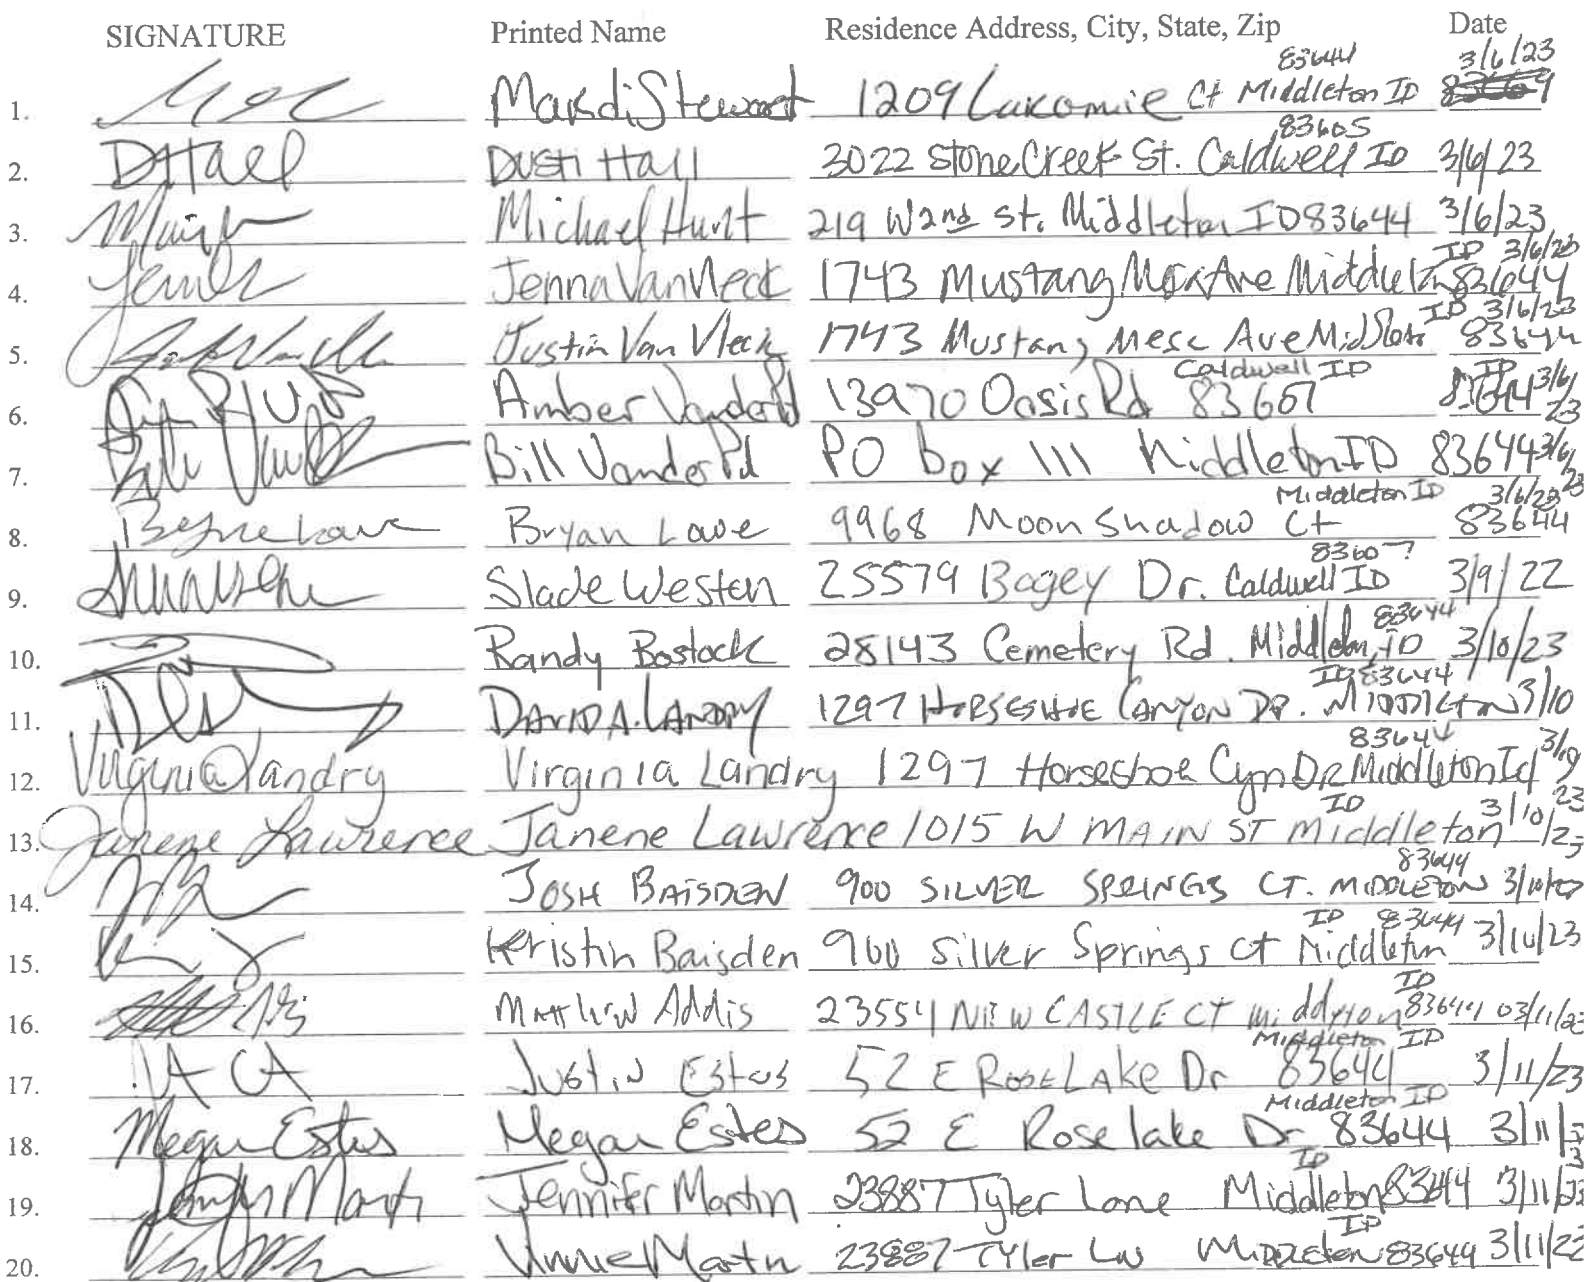 SIGNATURE Printed Name Residence Address, City, State, Zip Date
1. Mardi Stewart 1209 Ct Middleton ID 83644 3/6/23
2. DHall Dusti Hall 3022 Stone Creek St. Caldwell ID 83605 3/6/23
3. Michael Hunt 219 W 2nd St. Middleton ID 83644 3/6/23
4. Jenna Van Vleck 1743 Mustang Mesa Ave Middleton ID 83644 3/6/23
5. Justin Van Vleck 1743 Mustang Mesa Ave Middleton ID 83644 3/6/23
6. Amber VanderPol 13970 Oasis Rd Caldwell ID 83607 3/6/23
7. Bill VanderPol PO box 111 Middleton ID 83644 3/6/23
8. Bryan Lowe 9968 Moon Shadow Ct Middleton ID 83644 3/6/23
9. Slade Weston 25579 Bogey Dr. Caldwell ID 83607 3/9/22
10. Randy Bostock 28143 Cemetery Rd. Middleton, ID 83644 3/10/23
11. DAVID A. LANDRY 1297 HORSESHOE CANYON DR. MIDDLETON ID 83644 3/10
12. Virginia Landry Virginia Landry 1297 Horseshoe Cyn DR Middleton Id 83644 3/10/23
13. Janene Lawrence Janene Lawrence 1015 W MAIN ST Middleton ID 3/10/23
14. JOSH BAISDEN 900 SILVER SPRINGS CT. MIDDLETON 83644 3/10/23
15. Kristin Baisden 900 Silver Springs Ct Middleton ID 83644 3/10/23
16. Matthew Addis 23554 NEW CASTLE CT Middleton ID 83644 03/11/23
17. Justin Estes 52 E Rose Lake Dr Middleton ID 83644 3/11/23
18. Megan Estes Megan Estes 52 E Rose lake Dr Middleton ID 83644 3/11/23
19. Jennifer Martin Jennifer Martin 23887 Tyler Lane Middleton ID 83644 3/11/23
20. Vinnie Martin 23887 Tyler Ln Middleton ID 83644 3/11/23